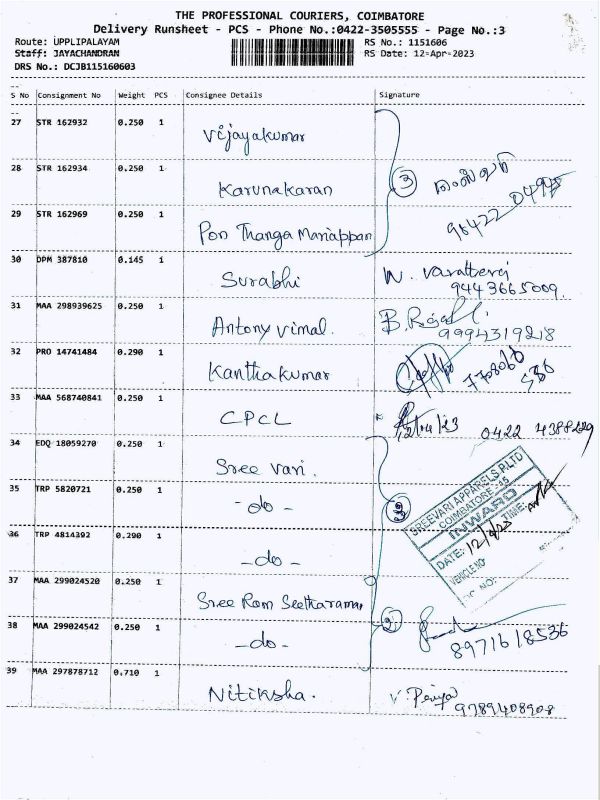 THE PROFESSIONAL COURIERS, COIMBATORE
Delivery Runsheet - PCS - Phone No.:0422-3505555 - Page No.:3
Route: UPPLIPALAYAM RS No.: 1151606
Staff: JAYACHANDRAN RS Date: 12-Apr-2023
DRS No.: DCJB115160603
S No Consignment No Weight PCS Consignee Details Signature
27 STR 162932 0.250 1 Vijayakumar
28 STR 162934 0.250 1 Karunakaran 3
29 STR 162969 0.250 1 Pon Thanga Mariappan
30 DPM 387810 0.145 1 Surabhi
9443665009
31 MAA 298939625 0.250 1 Antony Vimal.
9994319218
32 PRO 14741484 0.290 1 Kanthakumar
33 MAA 568740841 0.250 1 CPCL
0422
34 EDQ 18059270 0.250 1 Sree Vari.
SREEVARI APPARELS P.LTD
COIMBATORE-15
INWARD
DATE: 12/4/23 TIME:
VEHICLE NO:
DC NO:
35 TRP 5820721 0.250 1 -do-
36 TRP 4814392 0.290 1 -do-
37 MAA 299024520 0.250 1 Sree Ram Seetharaman
38 MAA 299024542 0.250 1 -do- 2
8971618536
39 MAA 297878712 0.710 1 Nitiksha.
V. Priya
9789408908